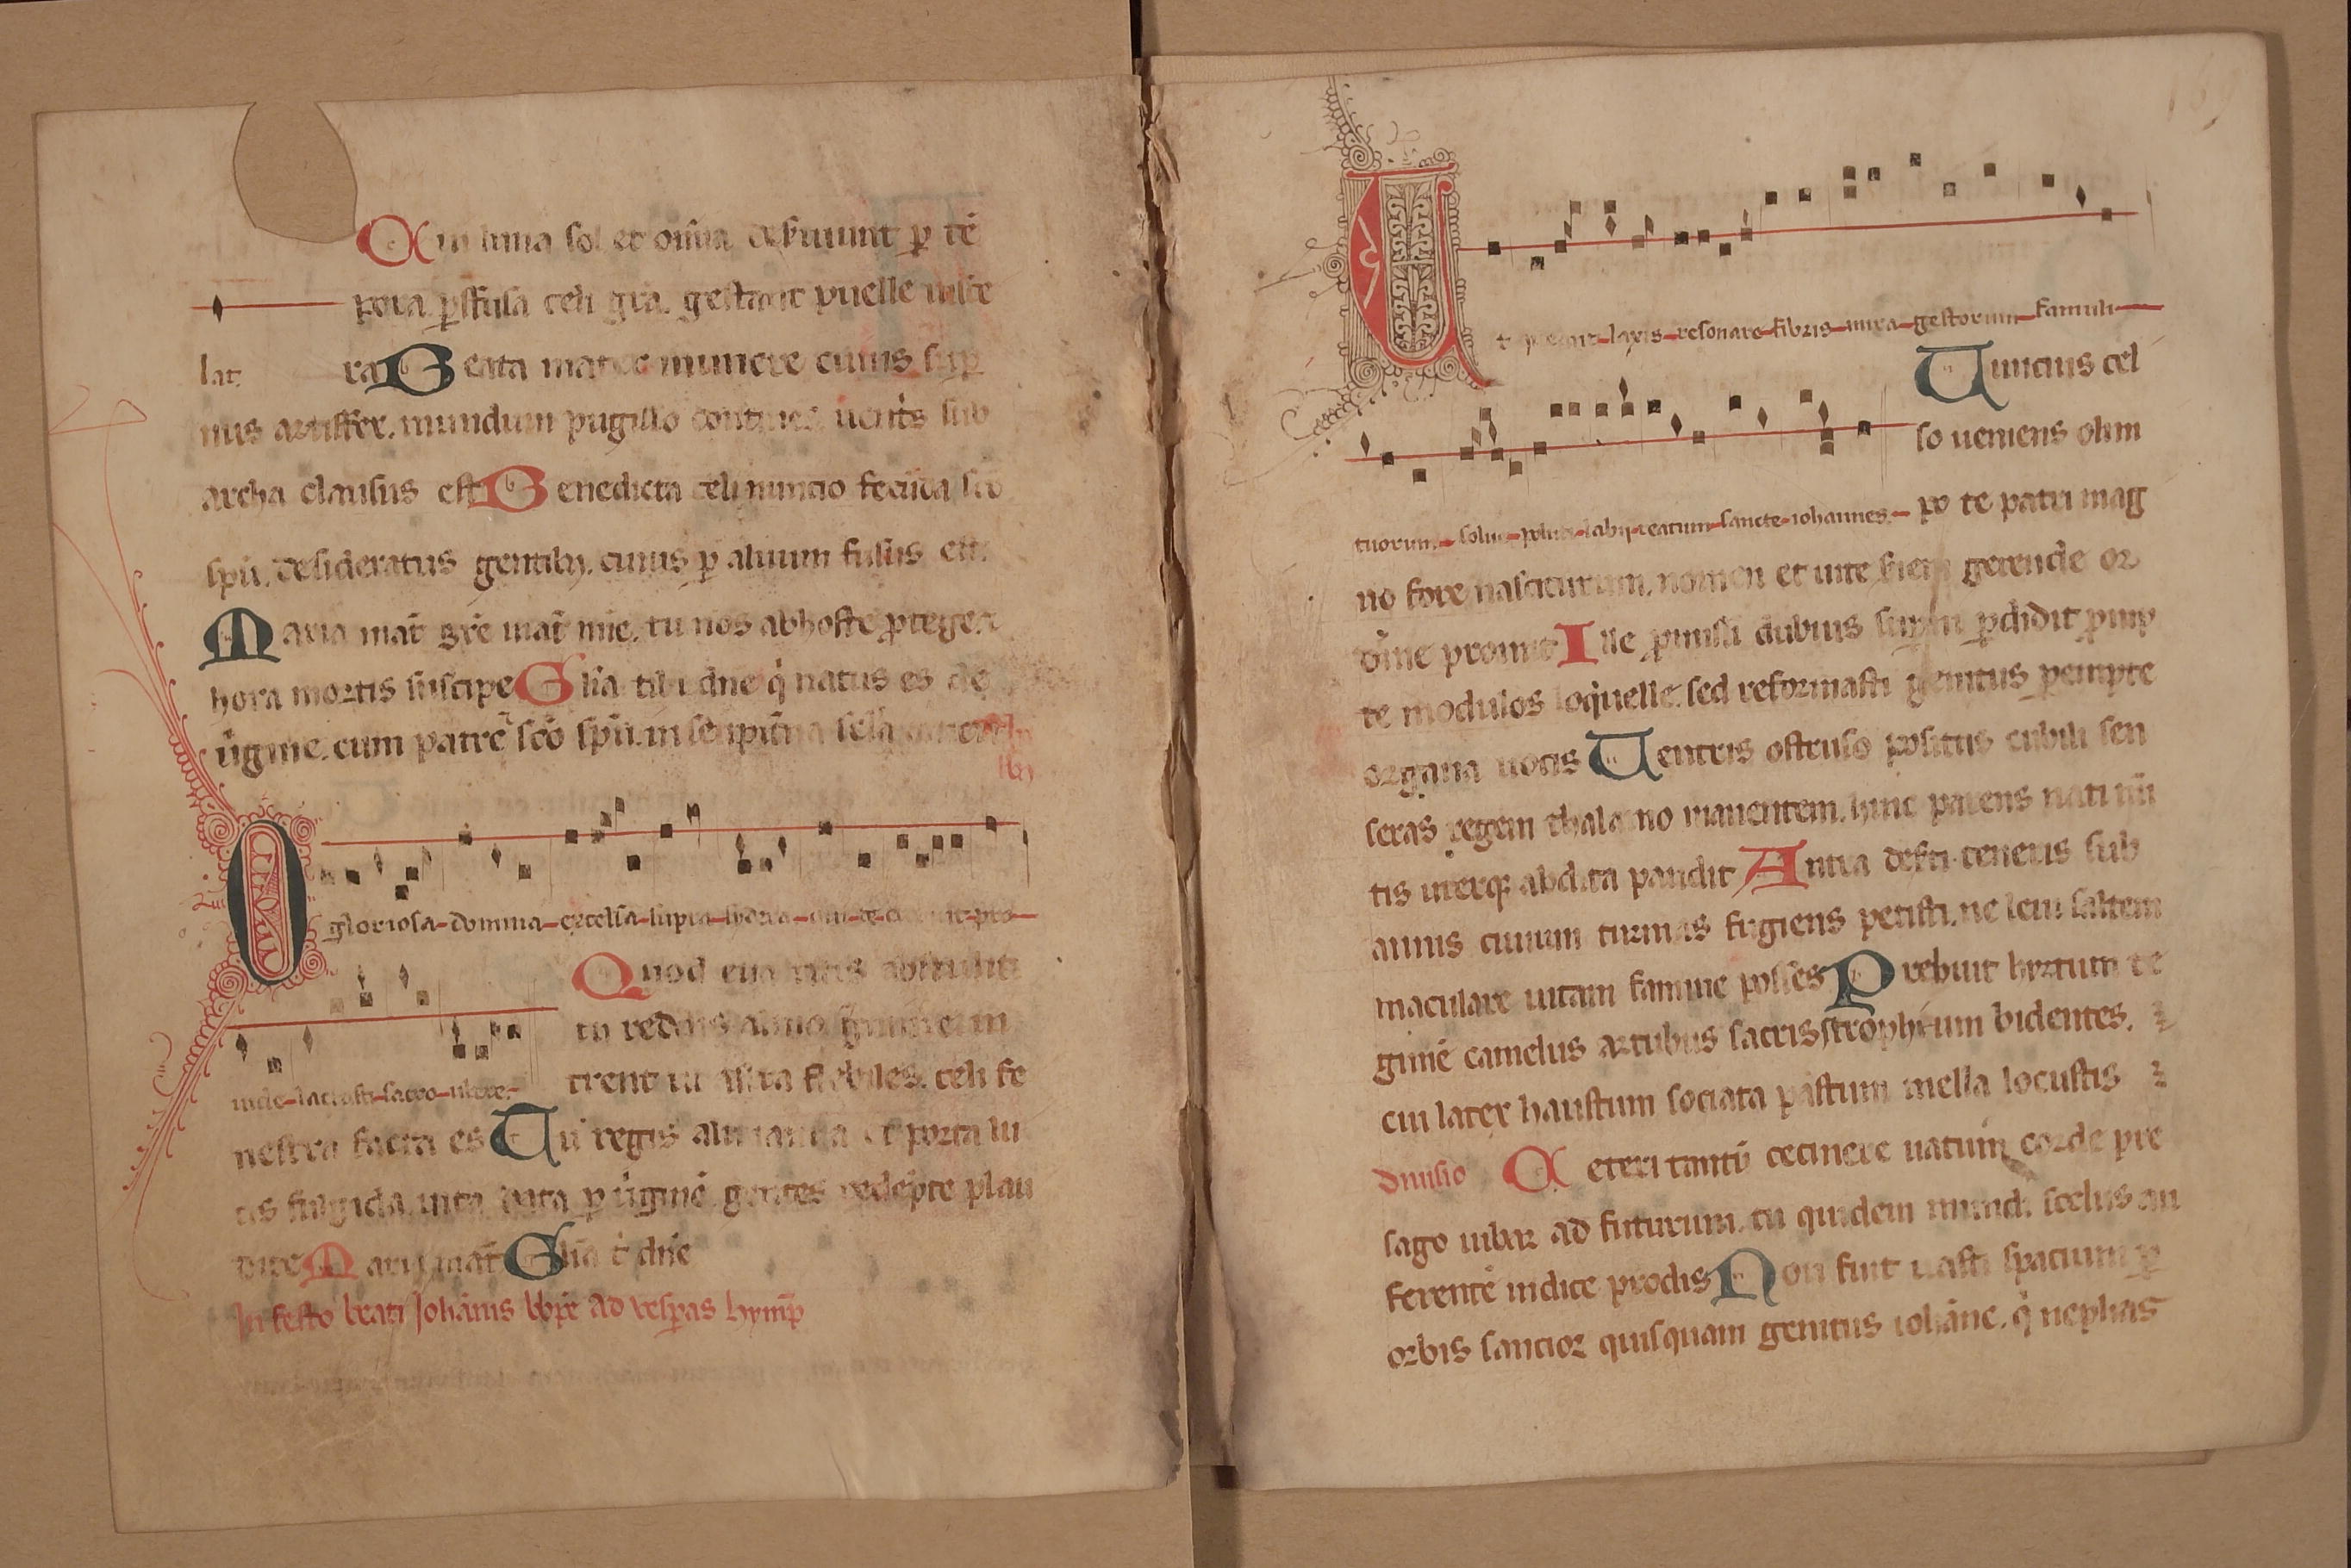 Cui luna sol et om̄ia deseruiunt p̲ tē
pora. p̲fusa celi gr̄a. gestant puelle uisce
lat. ra Beata mater munere cuius sup̲
nus artiffex. mundum pugillo continens uentris sub
archa clausus est Benedicta celi nuncio fecūda sc̄o
sp̄u. desideratus gentib; cuius p̲ aluum fusus est.
Maria mat̄ gr̄e mat̄ mīe. tu nos ab hoste p̲tege. &
hora mortis suscipe Gl̄ia tibi dn̄e q̇ natus es de
uı̇gine. cum patre sc̄o sp̄u. in sempit̄na sc̄la
O gloriosa domina excelsa supra sydera qui te creauit pro
Quod eua tristis abstulit
tu reddis almo germine. in
uide lactasti sacro ubere.
trent ut astra flebiles. celi fe
nestra facta es Tu regis alti ianua et porta lu
cis fulgida. uitā datā p̲ uı̇ginē. gentes redēpte plau
dite Maria mat̄ Gl̄ia t̄ dn̄e
In festo beati Johānis bp̄te ad uesp̲as hymp̄
Ut queant laxis resonare fibris mira gestorum famuli
Nuncius cel
so ueniens olim
tuorum. solue polluti labii reatum sancte iohannes.
po te patri mag
no fore nasciturum. nomen et uite seriem gerende or
dı̇ne promit Ille p̲missi dubius sup̲ni p̲didit p̲mp
te modulos loquelle. sed reformasti genitus p̲empte
organa uocis Uentris ostruso positus cubili sen
seras regem thalamo manentem. hinc parens nati mı̄
tis uterq; abdita pandit Antra deserti teneris sub
annis ciuium turmas fugiens petisti. ne leui saltem
maculare uitam famine posses Prebuit hyrtum te
gimē camelus artubus sacris strophium bidentes.
cui latex haustum sociata pastum mella locustis
diuisio Ceteri tantū cecinere uatum corde pre
sago iubar ad futurum. tu quidem mundi scelus au
ferentē indice prodis Non fuit uasti spatium p̲
orbis sanctior quisquam genitus iohāne. q̇ nephas